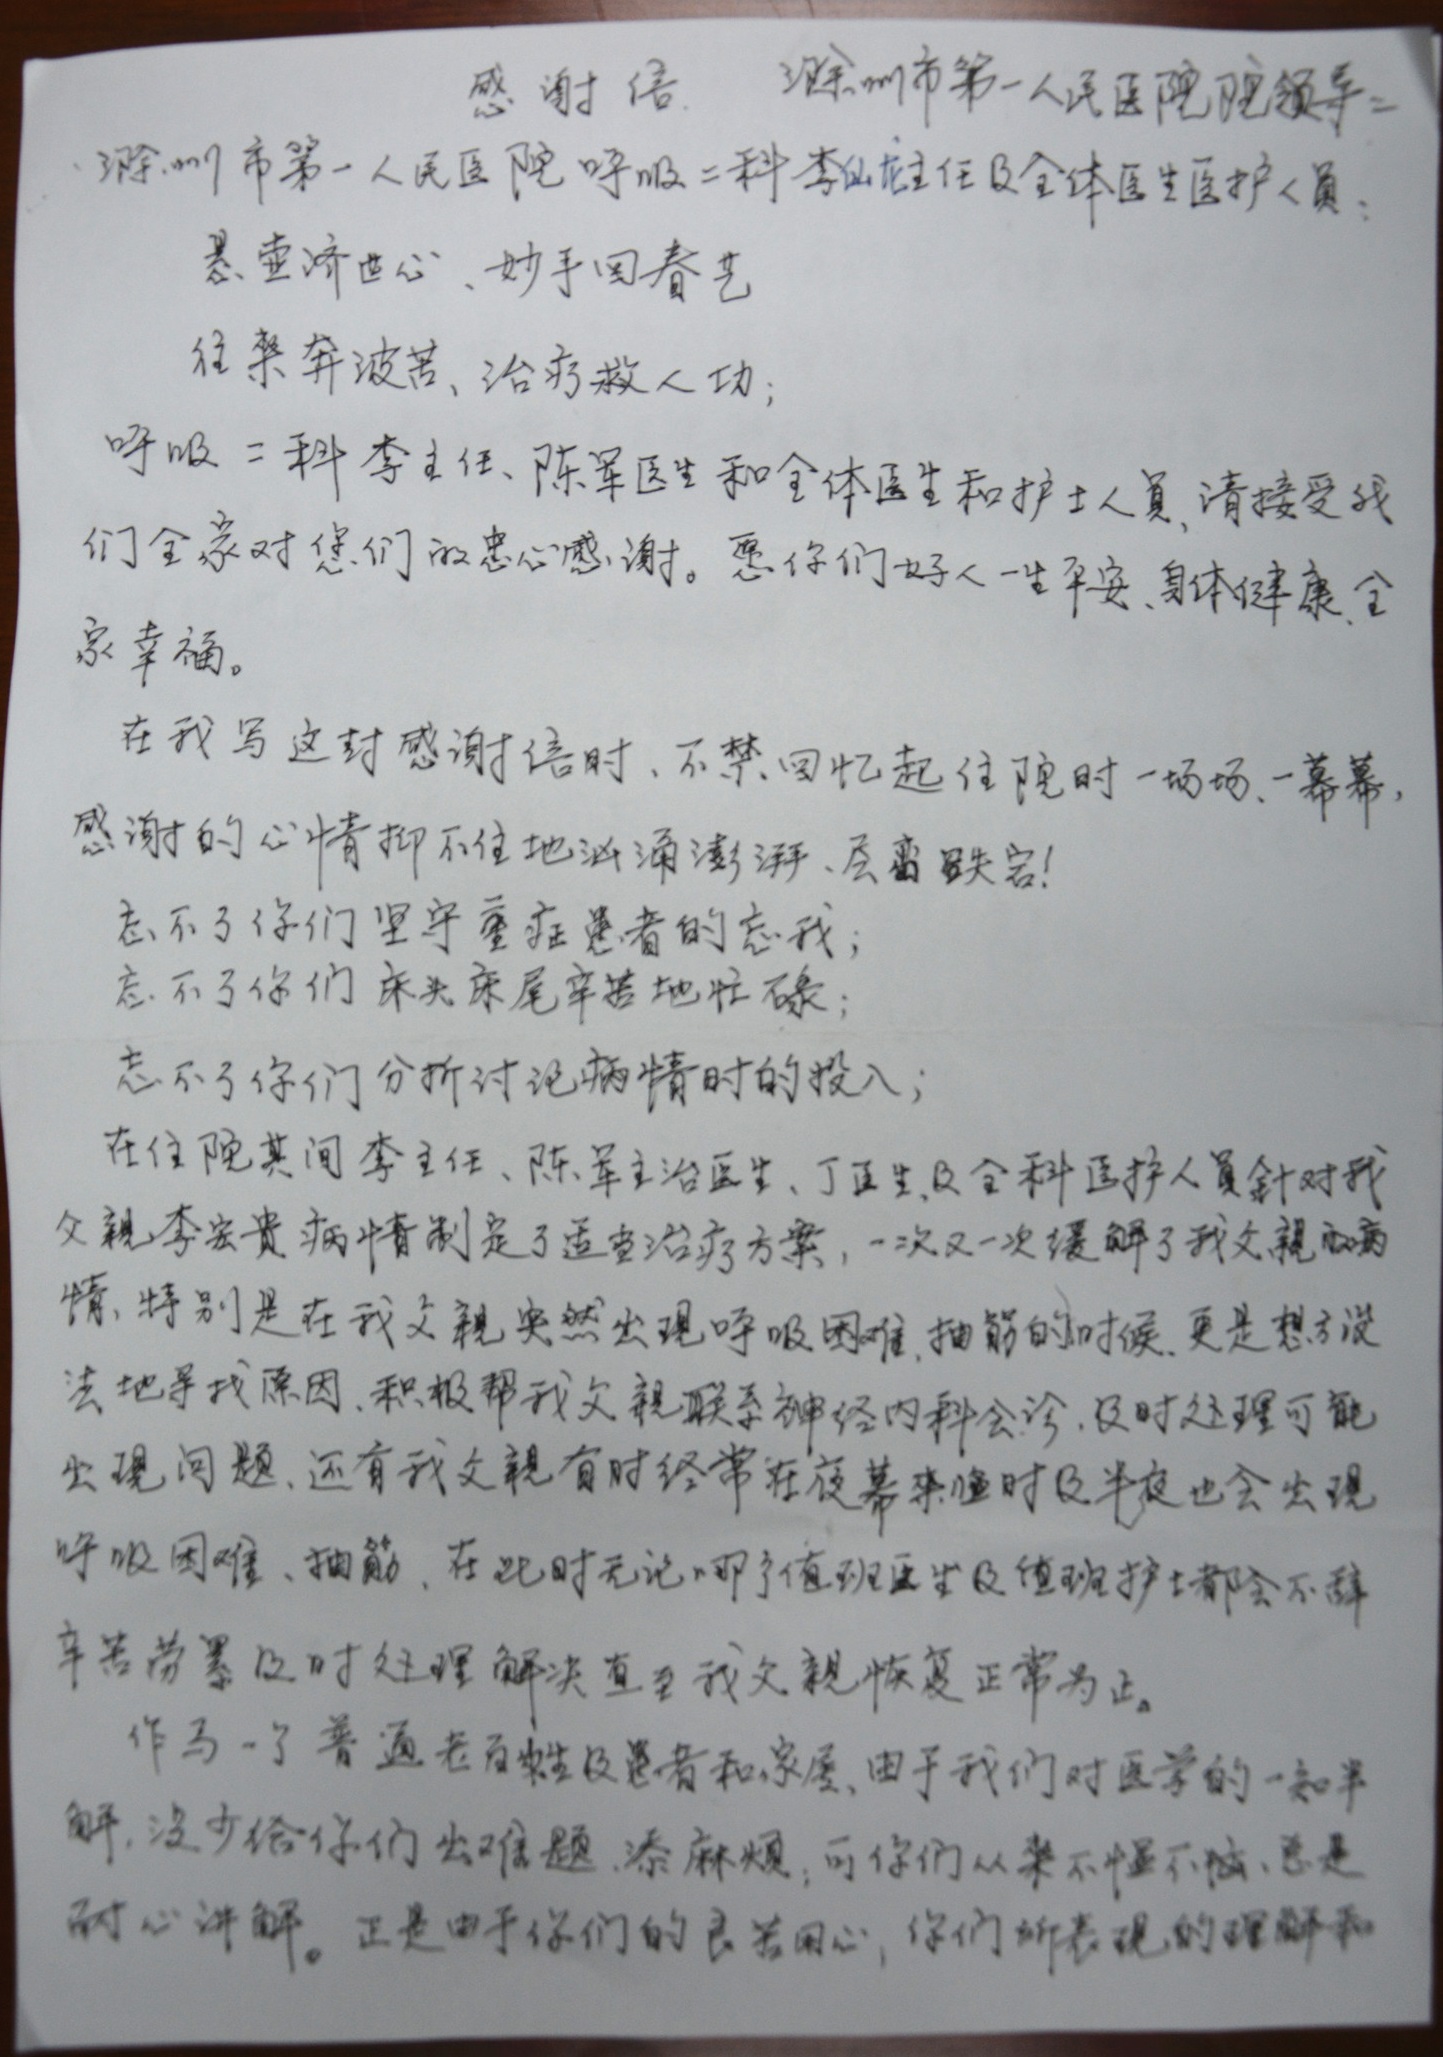 感谢信 滁州市第一人民医院院领导:
滁州市第一人民医院呼吸二科李仙龙主任及全体医生医护人员:
悬壶济世心、妙手回春艺
往来奔波苦、治疗救人功;
呼吸二科李主任、陈军医生和全体医生和护士人员,请接受我
们全家对您们的忠心感谢。愿你们好人一生平安、身体健康、全
家幸福。
在我写这封感谢信时、不禁回忆起住院时一场场、一幕幕,
感谢的心情抑不住地汹涌澎湃、
忘不了你们坚守重症患者的忘我;
忘不了你们床头床尾辛苦地忙碌;
忘不了你们分析讨论病情时的投入;
在住院其间李主任、陈军主治医生、丁医生、及全科医护人员針对我
父親李宏貴病情制定了适当治疗方案,一次又一次缓解了我父親的病
情、特别是在我父親突然出现呼吸困难、抽筋的时候、更是想方设
法地寻找原因、积极帮我父親联系神经内科会诊、及时处理可能
出现问题、还有我父親有时经常在夜幕来临时及半夜也会出现
呼吸困难、抽筋、在此时无论哪个值班医生及值班护士都会不辞
辛苦劳累及时处理解决直至我父親恢复正常为止。
作为一个普通老百姓及患者和家属、由于我们对医学的一知半
解、没少给你们出难题、添麻烦;可你们从来不愠不恼、总是
耐心讲解。正是由于你们的良苦用心,你们所表现的理解和